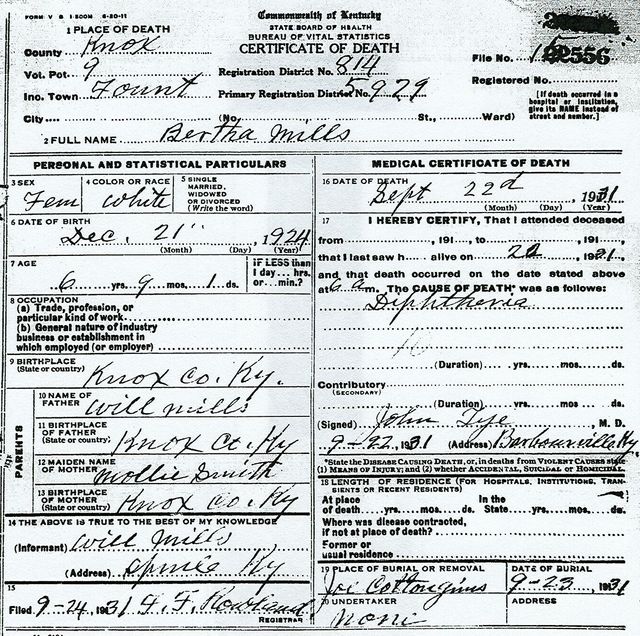 FORM V S 1-500M 6-20-11
Commonwealth of Kentucky
STATE BOARD OF HEALTH
BUREAU OF VITAL STATISTICS
CERTIFICATE OF DEATH
1 PLACE OF DEATH
County Knox
Vol. Pot. 9
Registration District No. 814
File No. 22556
Inc. Town Fount
Primary Registration District No. 5929
Registered No.
City (No. St., Ward)
[If death occurred in a hospital or institution, give its NAME instead of street and number.]
2 FULL NAME Bertha Mills
PERSONAL AND STATISTICAL PARTICULARS
3 SEX Fem
4 COLOR OR RACE White
5 SINGLE MARRIED, WIDOWED OR DIVORCED (Write the word)
6 DATE OF BIRTH
Dec. 21" 1924
(Month) (Day) (Year)
7 AGE
6 yrs. 9 mos. 1 ds.
IF LESS than 1 day... hrs. or... min.?
8 OCCUPATION
(a) Trade, profession, or
particular kind of work
(b) General nature of industry
business or establishment in
which employed (or employer)
9 BIRTHPLACE
(State or country) Knox Co. Ky.
PARENTS
10 NAME OF FATHER Will Mills
11 BIRTHPLACE OF FATHER (State or country) Knox Co. Ky
12 MAIDEN NAME OF MOTHER Mollie Smith
13 BIRTHPLACE OF MOTHER (State or country) Knox Co. Ky
14 THE ABOVE IS TRUE TO THE BEST OF MY KNOWLEDGE
(Informant) Will Mills
(Address) Ky
15
Filed 9-24, 1931 F. F. Rowland
REGISTRAR
MEDICAL CERTIFICATE OF DEATH
16 DATE OF DEATH
Sept 22d 1931
(Month) (Day) (Year)
17 I HEREBY CERTIFY, That I attended deceased
from , 191 , to , 191 ,
that I last saw h alive on 22 , 1931,
and that death occurred on the date stated above
at 6 a m. The CAUSE OF DEATH* was as follows:
Diphtheria
10
(Duration) yrs. mos. ds.
Contributory
(SECONDARY)
(Duration) yrs. mos. ds.
(Signed) John Tye M. D.
9-22, 1931 (Address) Barbourville Ky
*State the DISEASE CAUSING DEATH, or, in deaths from VIOLENT CAUSES state
(1) MEANS OF INJURY; and (2) whether ACCIDENTAL, SUICIDAL or HOMICIDAL.
18 LENGTH OF RESIDENCE (FOR HOSPITALS, INSTITUTIONS, TRANSIENTS OR RECENT RESIDENTS)
At place of death yrs. mos. ds. In the State yrs. mos. ds.
Where was disease contracted,
if not at place of death?
Former or
usual residence
19 PLACE OF BURIAL OR REMOVAL
DATE OF BURIAL
Joe Cottongims 9-23, 1931
20 UNDERTAKER
ADDRESS
None